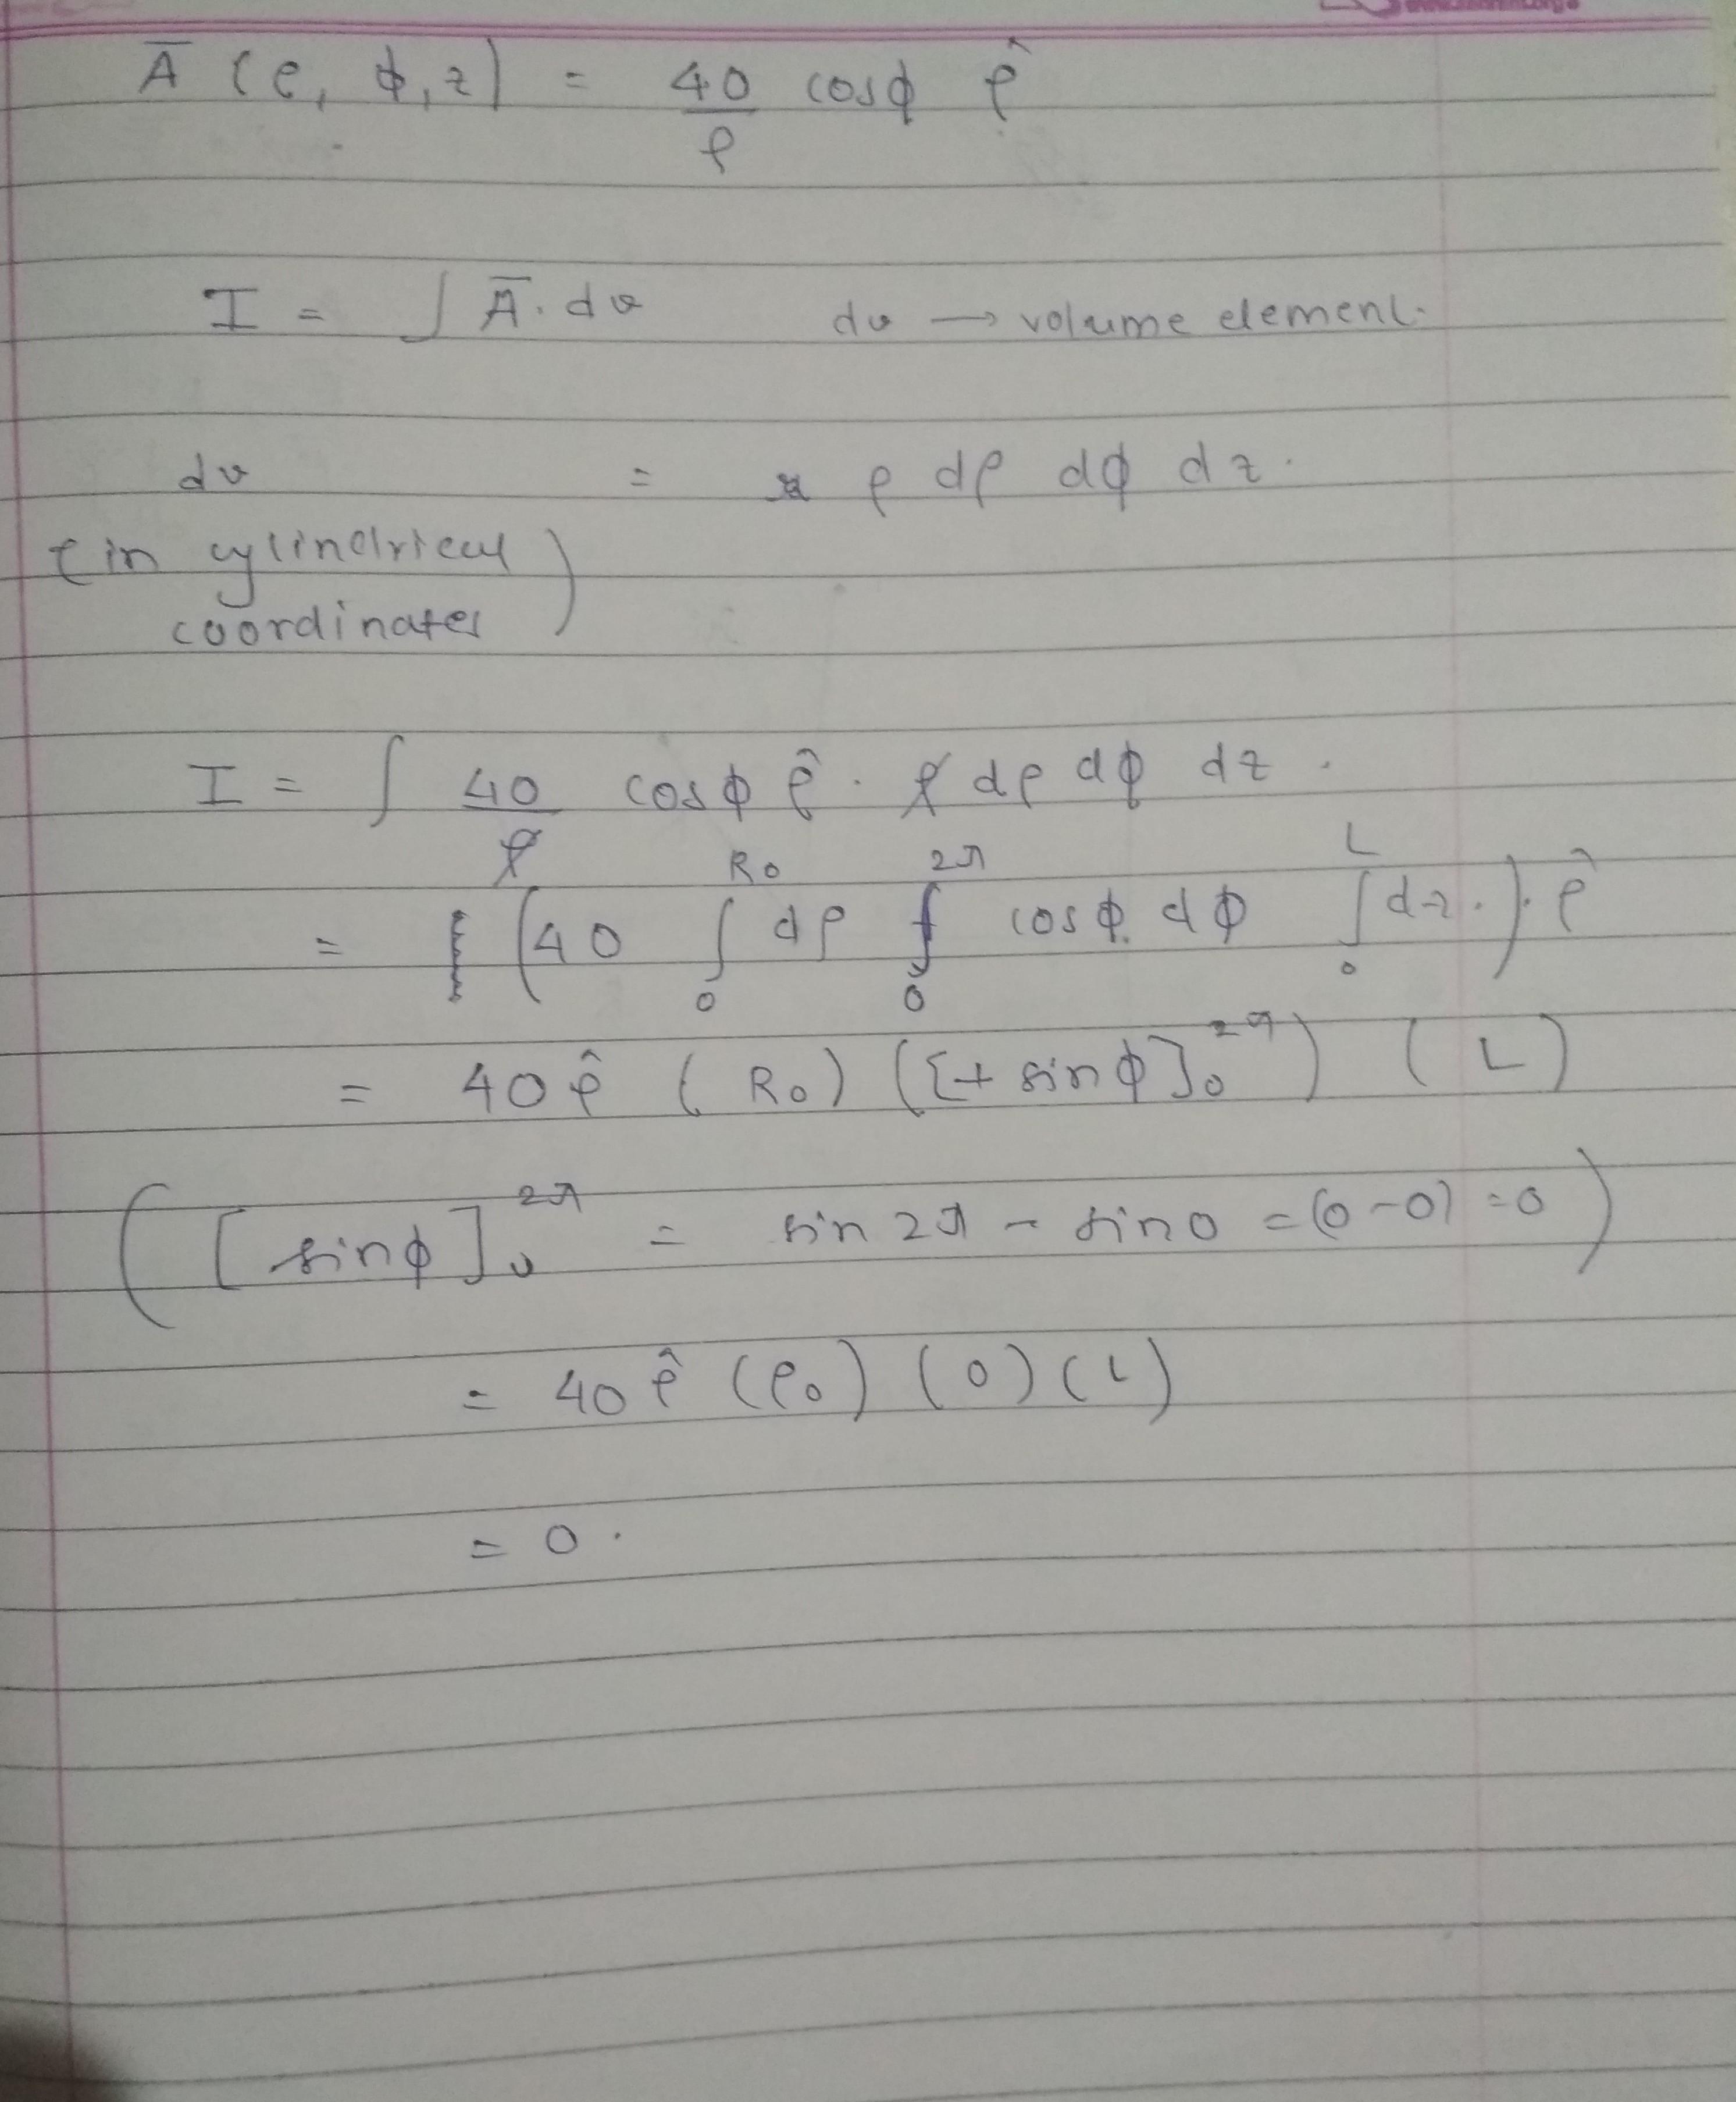 Ā (ρ, ϕ, z) = 40/ρ cosϕ ρ̂
I = ∫ Ā. dv dv → volume element.
dv = ρ dρ dϕ dz.
(in cylindrical
coordinates)
I = ∫ 40/ρ cosϕ ρ̂ . ρ dρ dϕ dz .
= (40 ∫₀^R₀ dρ ∫₀^2π cosϕ. dϕ ∫₀^L dz.). ρ̂
= 40 ρ̂ (R₀) ([+ sinϕ]₀^2π) (L)
([sinϕ]₀^2π = sin 2π - sin 0 = (0-0) = 0)
= 40 ρ̂ (ρ₀) (0) (L)
= 0 .